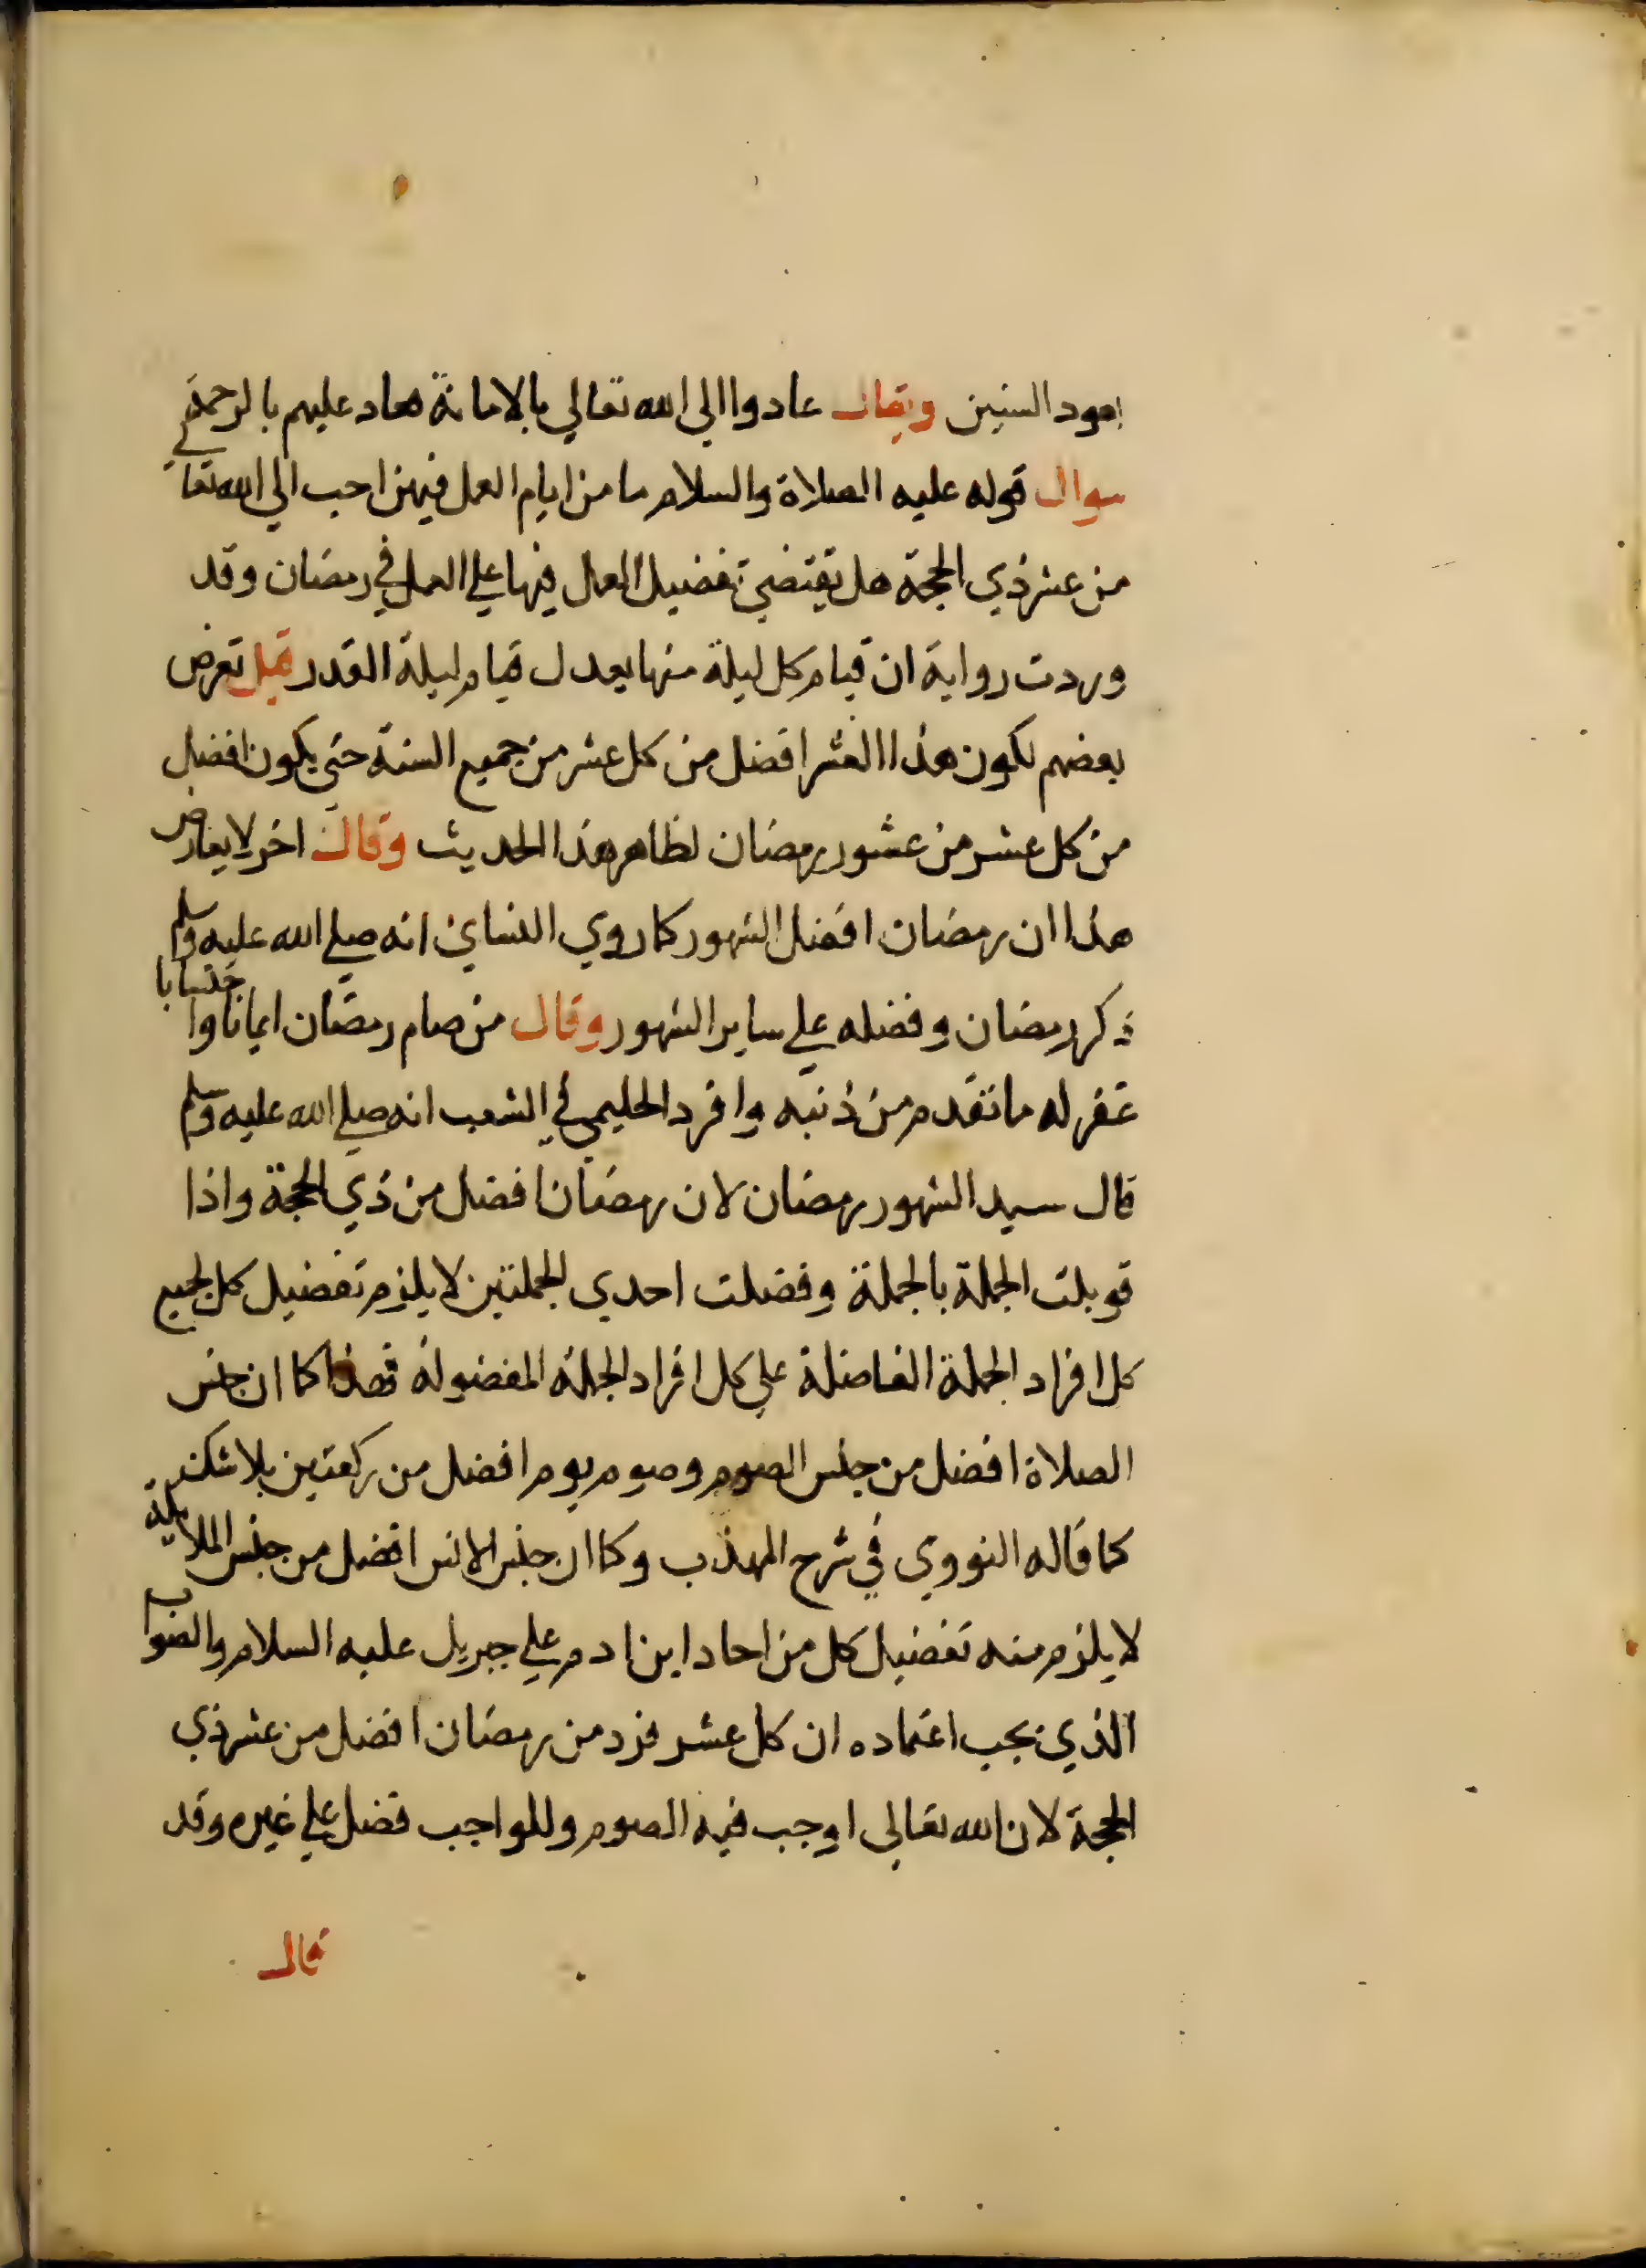 بعود السنين ويقال عادوا الي الله تعالي بالامانة فعاد عليهم بالرحمة
سوال قوله عليه الصلاة والسلام ما من ايام العمل فيهن احب الي الله تعا
من عشر ذي الحجة هل يقتضي تفضيل العمل فيها علي العمل في رمضان وقد
وردت رواية ان قيام كل ليلة منها يعدل قيام ليلة القدر قيل تعرض
بعضهم لكون هذا العشر افضل من كل عشر من جميع السنة حتي يكون افضل
من كل عشر من عشور رمضان لظاهر هذا الحديث وقال اخر لا يعارض
هذا ان رمضان افضل الشهور كما روي النساي انه صلي الله عليه وسلم
ذكر رمضان وفضله علي ساير الشهور وقال من صام رمضان ايمانا واحتسابا
غفر له ما تقدم من ذنبه وافرد الحليمي في الشعب انه صلي الله عليه وسلم
قال سيد الشهور رمضان لان رمضان افضل من ذي الحجة واذا
قوبلت الجملة بالجملة وفضلت احدي الجملتين لا يلزم تفضيل كل جميع
كل افراد الجملة الفاضلة علي كل افراد الجملة المفضولة فهذا كما ان جنس
الصلاة افضل من جنس الصوم وصوم يوم افضل من ركعتين بلا شك
كما قاله النووي في شرح المهذب وكما ان جنس الانس افضل من جنس الملايكة
لا يلزم منه تفضيل كل من احاد ابن ادم علي جبريل عليه السلام والصواب
الذي يجب اعتماده ان كل عشر فرد من رمضان افضل من عشر ذي
الحجة لان الله تعالي اوجب فيه الصوم وللواجب فضل علي غيره وقد
قال